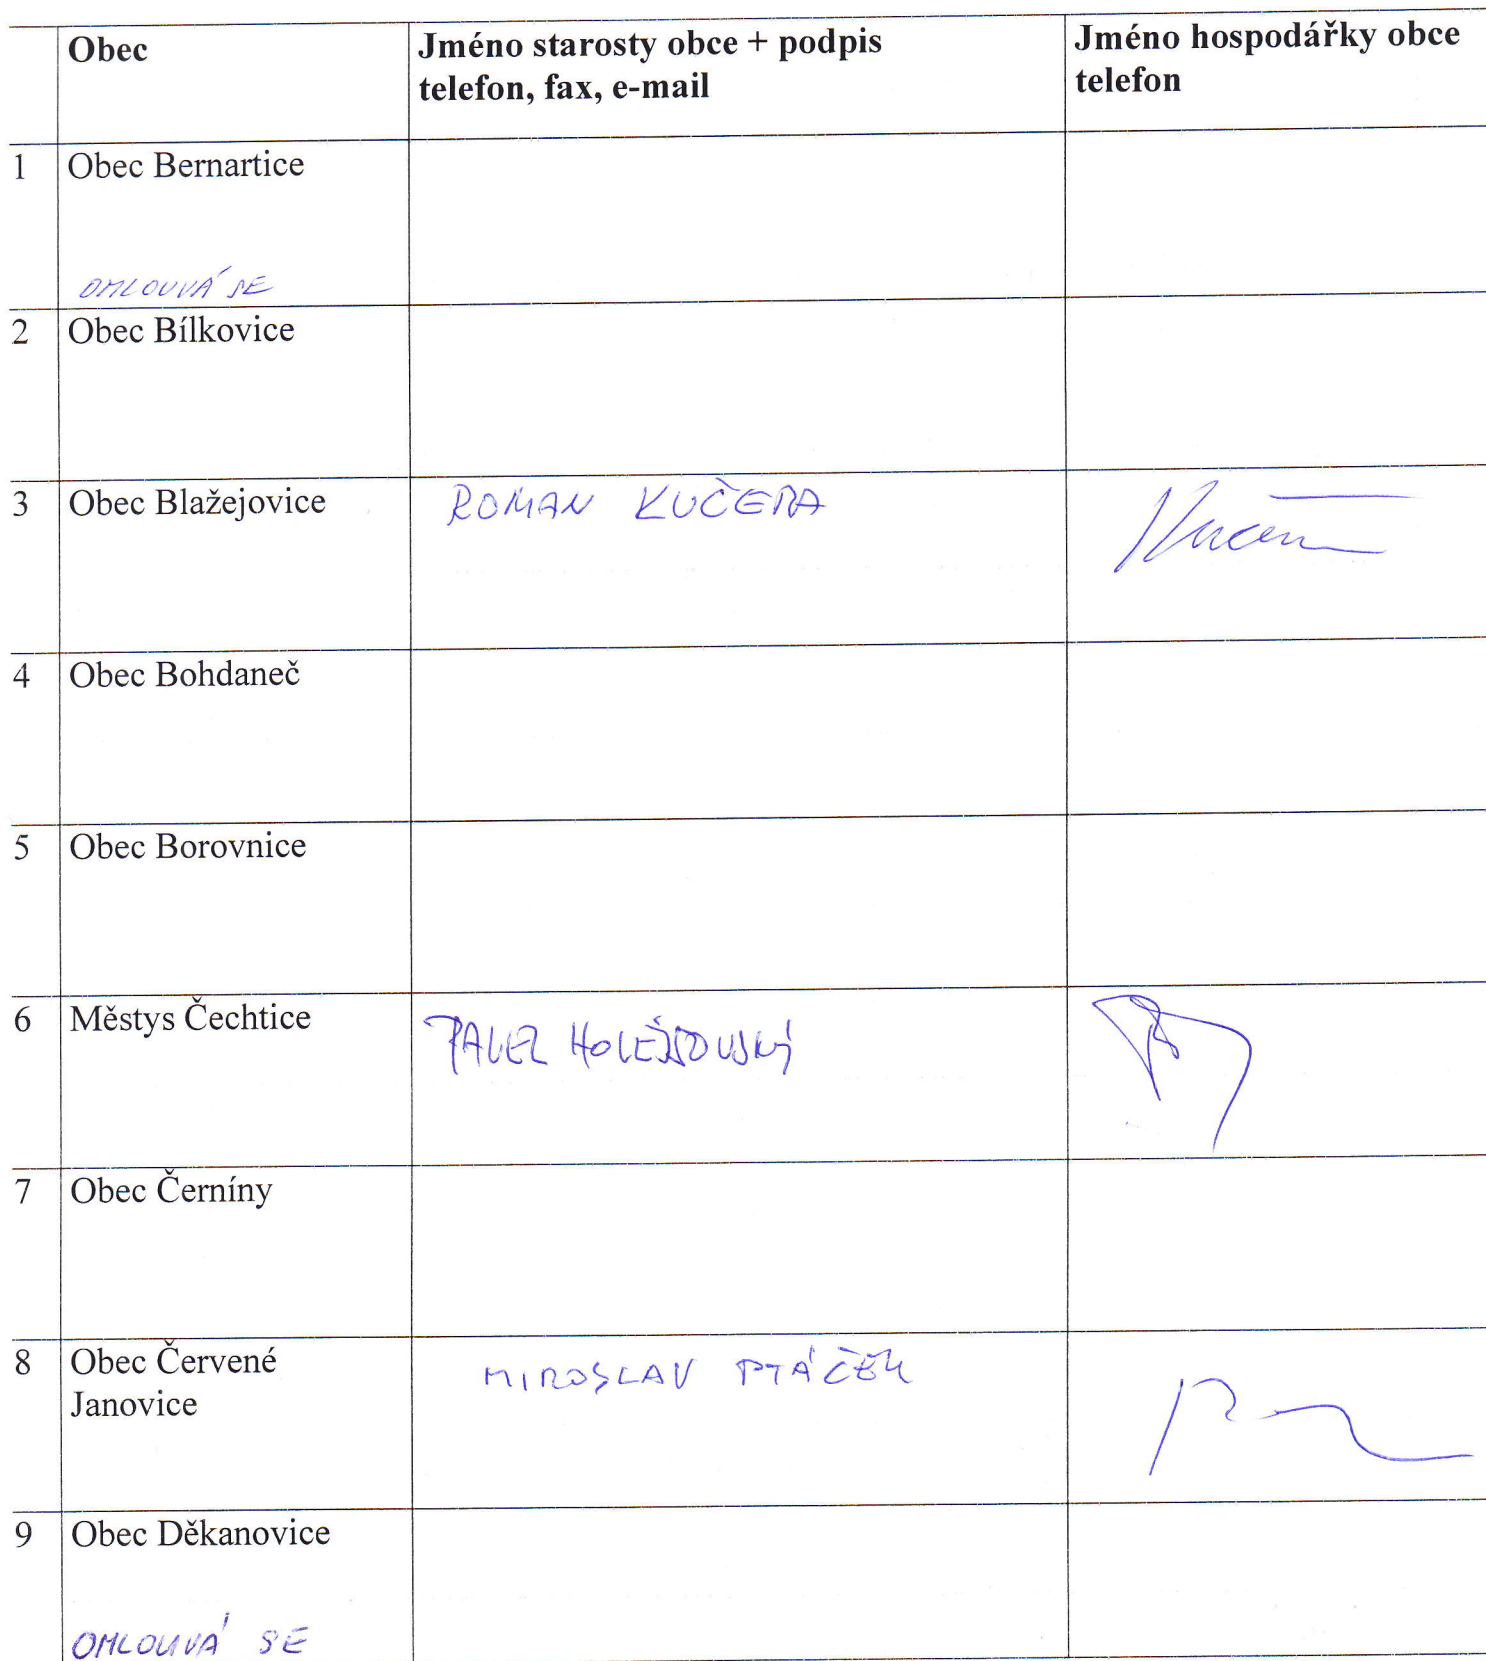 Obec
Jméno starosty obce + podpis
telefon, fax, e-mail
Jméno hospodářky obce
telefon
1 Obec Bernartice
OMLOUVÁ SE
2 Obec Bílkovice
3 Obec Blažejovice ROMAN KUČERA
4 Obec Bohdaneč
5 Obec Borovnice
6 Městys Čechtice PAVEL HOLEJŠOVSKÝ
7 Obec Černíny
8 Obec Červené MIROSLAV PTÁČEK
Janovice
9 Obec Děkanovice
OMLOUVÁ SE